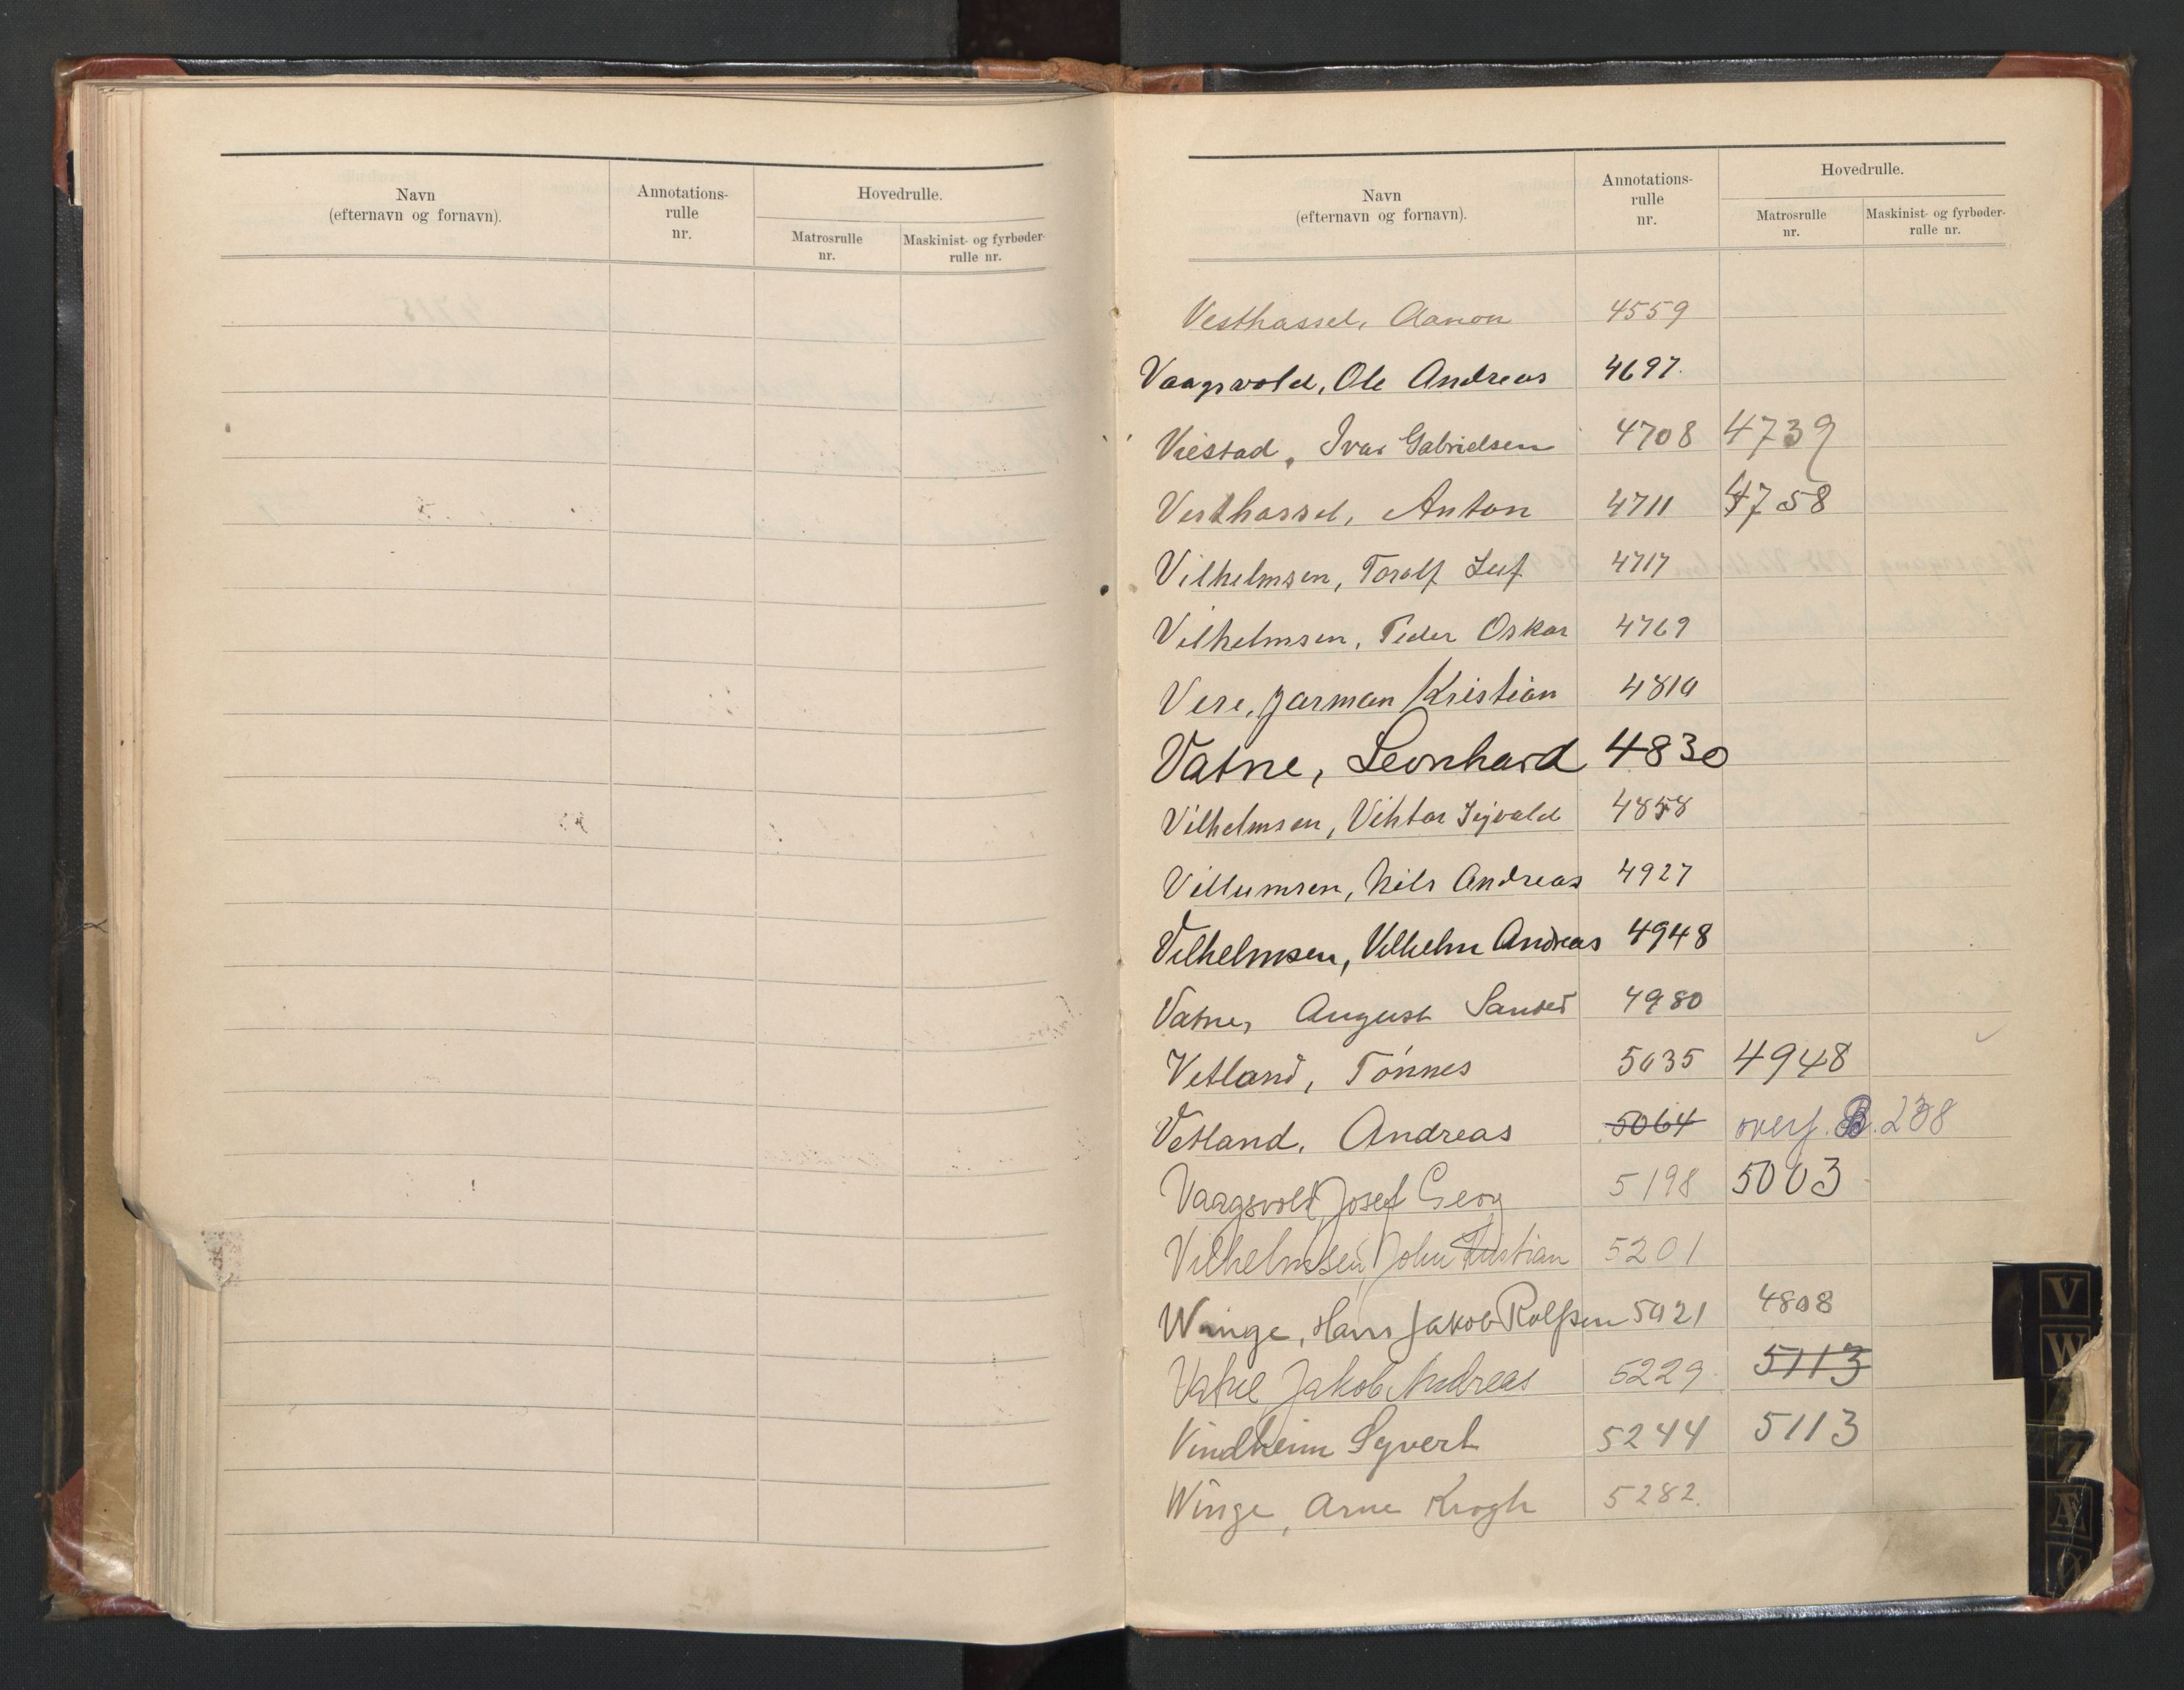 Navn
(efternavn og fornavn).
Annotations-
rulle
nr.
Hovedrulle.
Matrosrulle
nr.
Maskinist- og fyrbøder-
rulle nr.
Navn
(efternavn og fornavn).
Annotations-
rulle
nr.
Hovedrulle.
Matrosrulle
nr.
Maskinist- og fyrbøder-
rulle nr.
Vesthassel, Aanon 4559
Vaagsvold, Ole Andreas 4697.
Viestad, Ivar Gabrielsen 4708 4739
Vesthassel, Anton 4711 4758
Vilhelmsen, Toralf Leif 4717
Vilhelmsen, Peder Oskar 4769
Vere, Jarman Kristian 4810
Vatne, Leonhard 4830
Vilhelmsen, Viktor Sigvald 4858
Villumsen, Nils Andreas 4927
Vilhelmsen, Vilhelm Andreas 4948
Vatne, August 4980
Vetland, Tønnes 5035 4948
Vetland, Andreas 5064 overf. B. 238
Vaagsvold, Josef Georg 5198 5003
Vilhelmsen, John Kristian 5201
Winge, Hans Jakob Rolfsen 5021 4808
Vatne, Jakob Andreas 5229 5113
Vindheim Syvert 5244 5113
Winge, Arne Krogh 5282.
V
W
Z
Æ
Ø